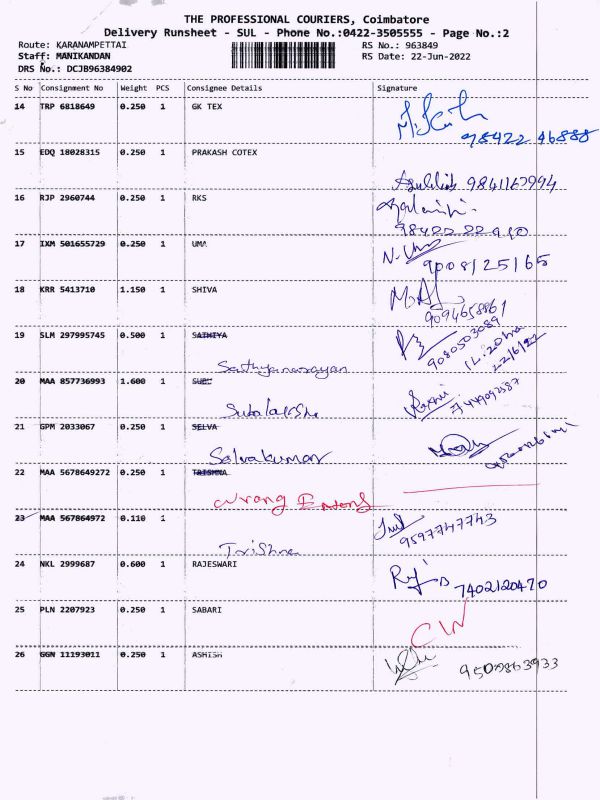 THE PROFESSIONAL COURIERS, Coimbatore
Delivery Runsheet - SUL - Phone No.:0422-3505555 - Page No.:2
Route: KARANAMPETTAI RS No.: 963849
Staff: MANIKANDAN RS Date: 22-Jun-2022
DRS No.: DCJB96384902
S No Consignment No Weight PCS Consignee Details Signature
14 TRP 6818649 0.250 1 GK TEX
98422 46888
15 EDQ 18028315 0.250 1 PRAKASH COTEX
9841163994
16 RJP 2960744 0.250 1 RKS
98422 22910
17 IXM 501655729 0.250 1 UMA
9008125165
18 KRR 5413710 1.150 1 SHIVA
9094658861
19 SLM 297995745 0.500 1 SATHIYA
9080503089
12:20hrs
22/6/22
Sathyanarayan
20 MAA 857736993 1.600 1 SUBU
Subalakshi
21 GPM 2033067 0.250 1 SELVA
Selvakumar
22 MAA 5678649272 0.250 1 TRISHNA
Wrong Entry
23 MAA 567864972 0.110 1
9597747743
Trishna
24 NKL 2999687 0.600 1 RAJESWARI
7402120470
25 PLN 2207923 0.250 1 SABARI
C/N
26 GGN 11193011 0.250 1 ASHISH
9500863933